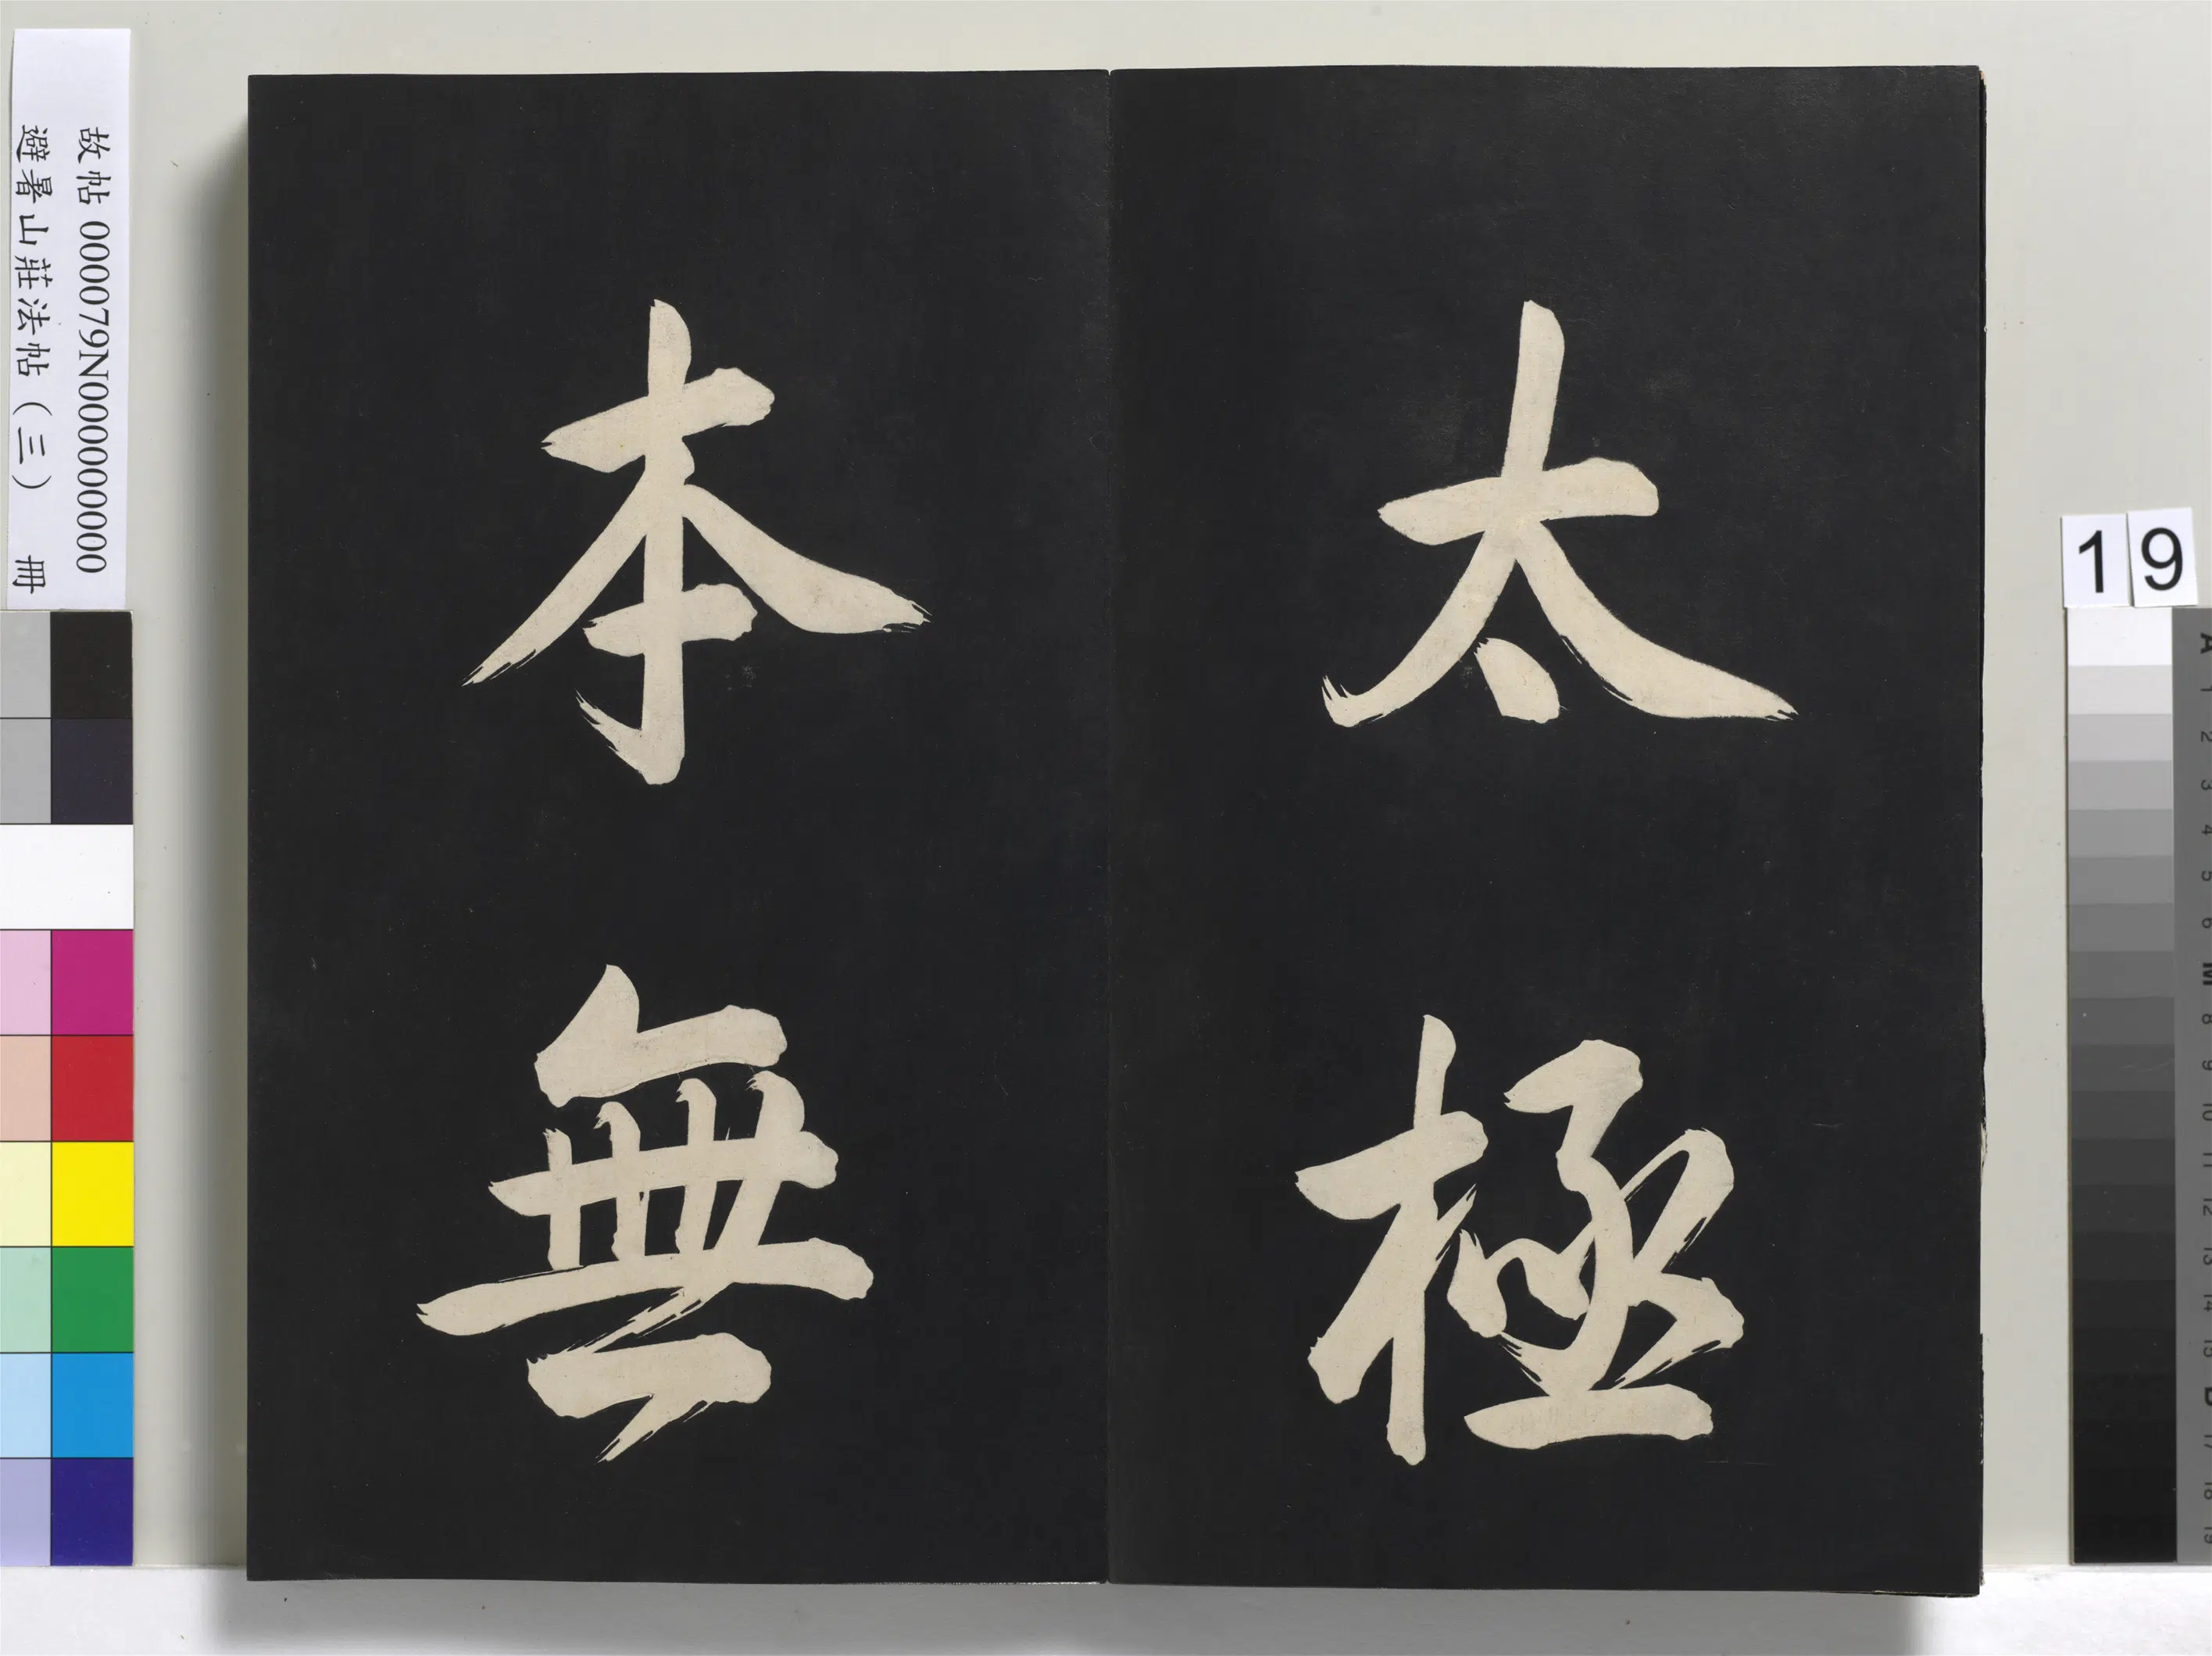 太極
本無
故帖 000079N000000000
避暑山莊法帖（三） 冊
19
A
1
2
3
4
5
6
M
8
9
10
11
12
13
14
15
B
17
18
19